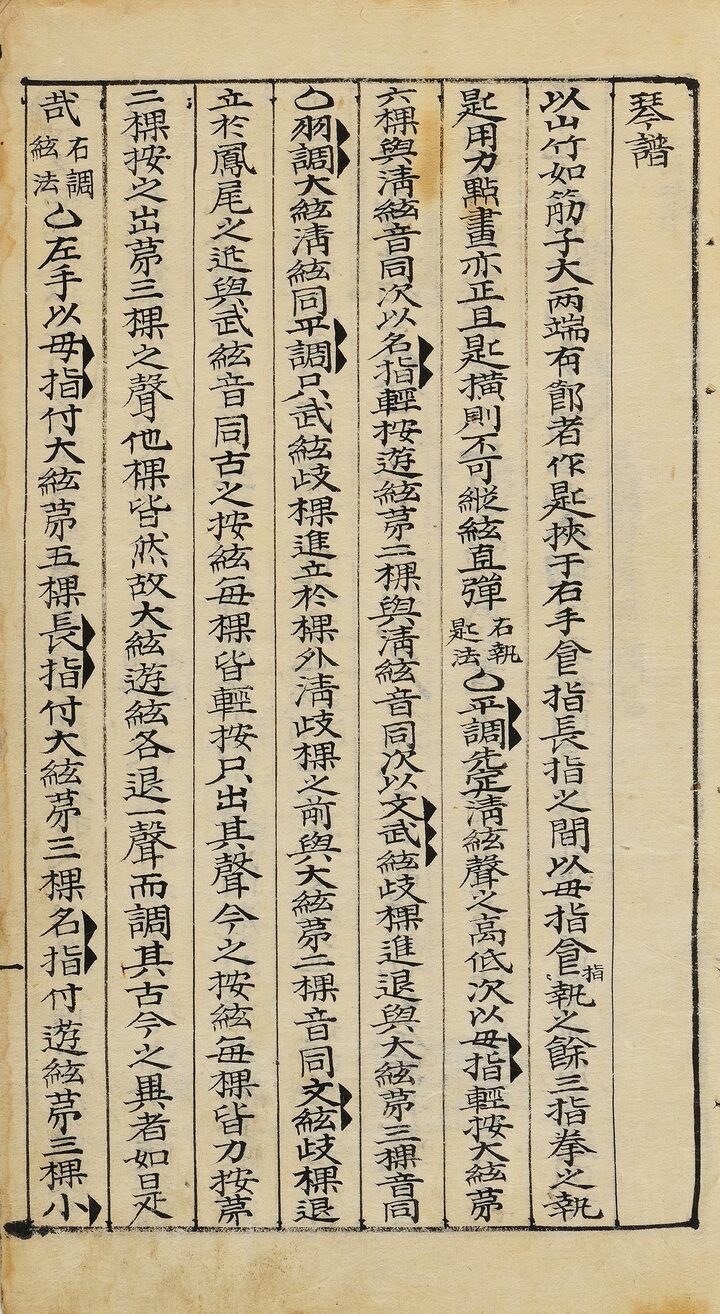 琴譜
以山竹如筋子大兩端有節者作匙挾于右手食指長指之間以毋指食指執之餘三指拳之執
匙用力點畫亦正且匙撗則不可縱絃直彈右執匙法〇平調先定淸絃聲之高低次以毋指輕按大絃苐
六棵與淸絃音同次以名指輕按遊絃苐二棵與淸絃音同次以文武絃歧棵進退與大絃苐三棵音同
〇羽調大絃淸絃同平調只武絃歧棵進立於棵外淸歧棵之前與大絃苐二棵音同文絃歧棵退
立於鳳尾之近與武絃音同古之按絃每棵皆輕按只出其聲今之按絃每棵皆力按苐
二棵按之出苐三棵之聲他棵皆然故大絃遊絃各退一聲而調其古今之異者如是
哉右調絃法〇左手以毋指付大絃苐五棵長指付大絃苐三棵名指付遊絃苐三棵小